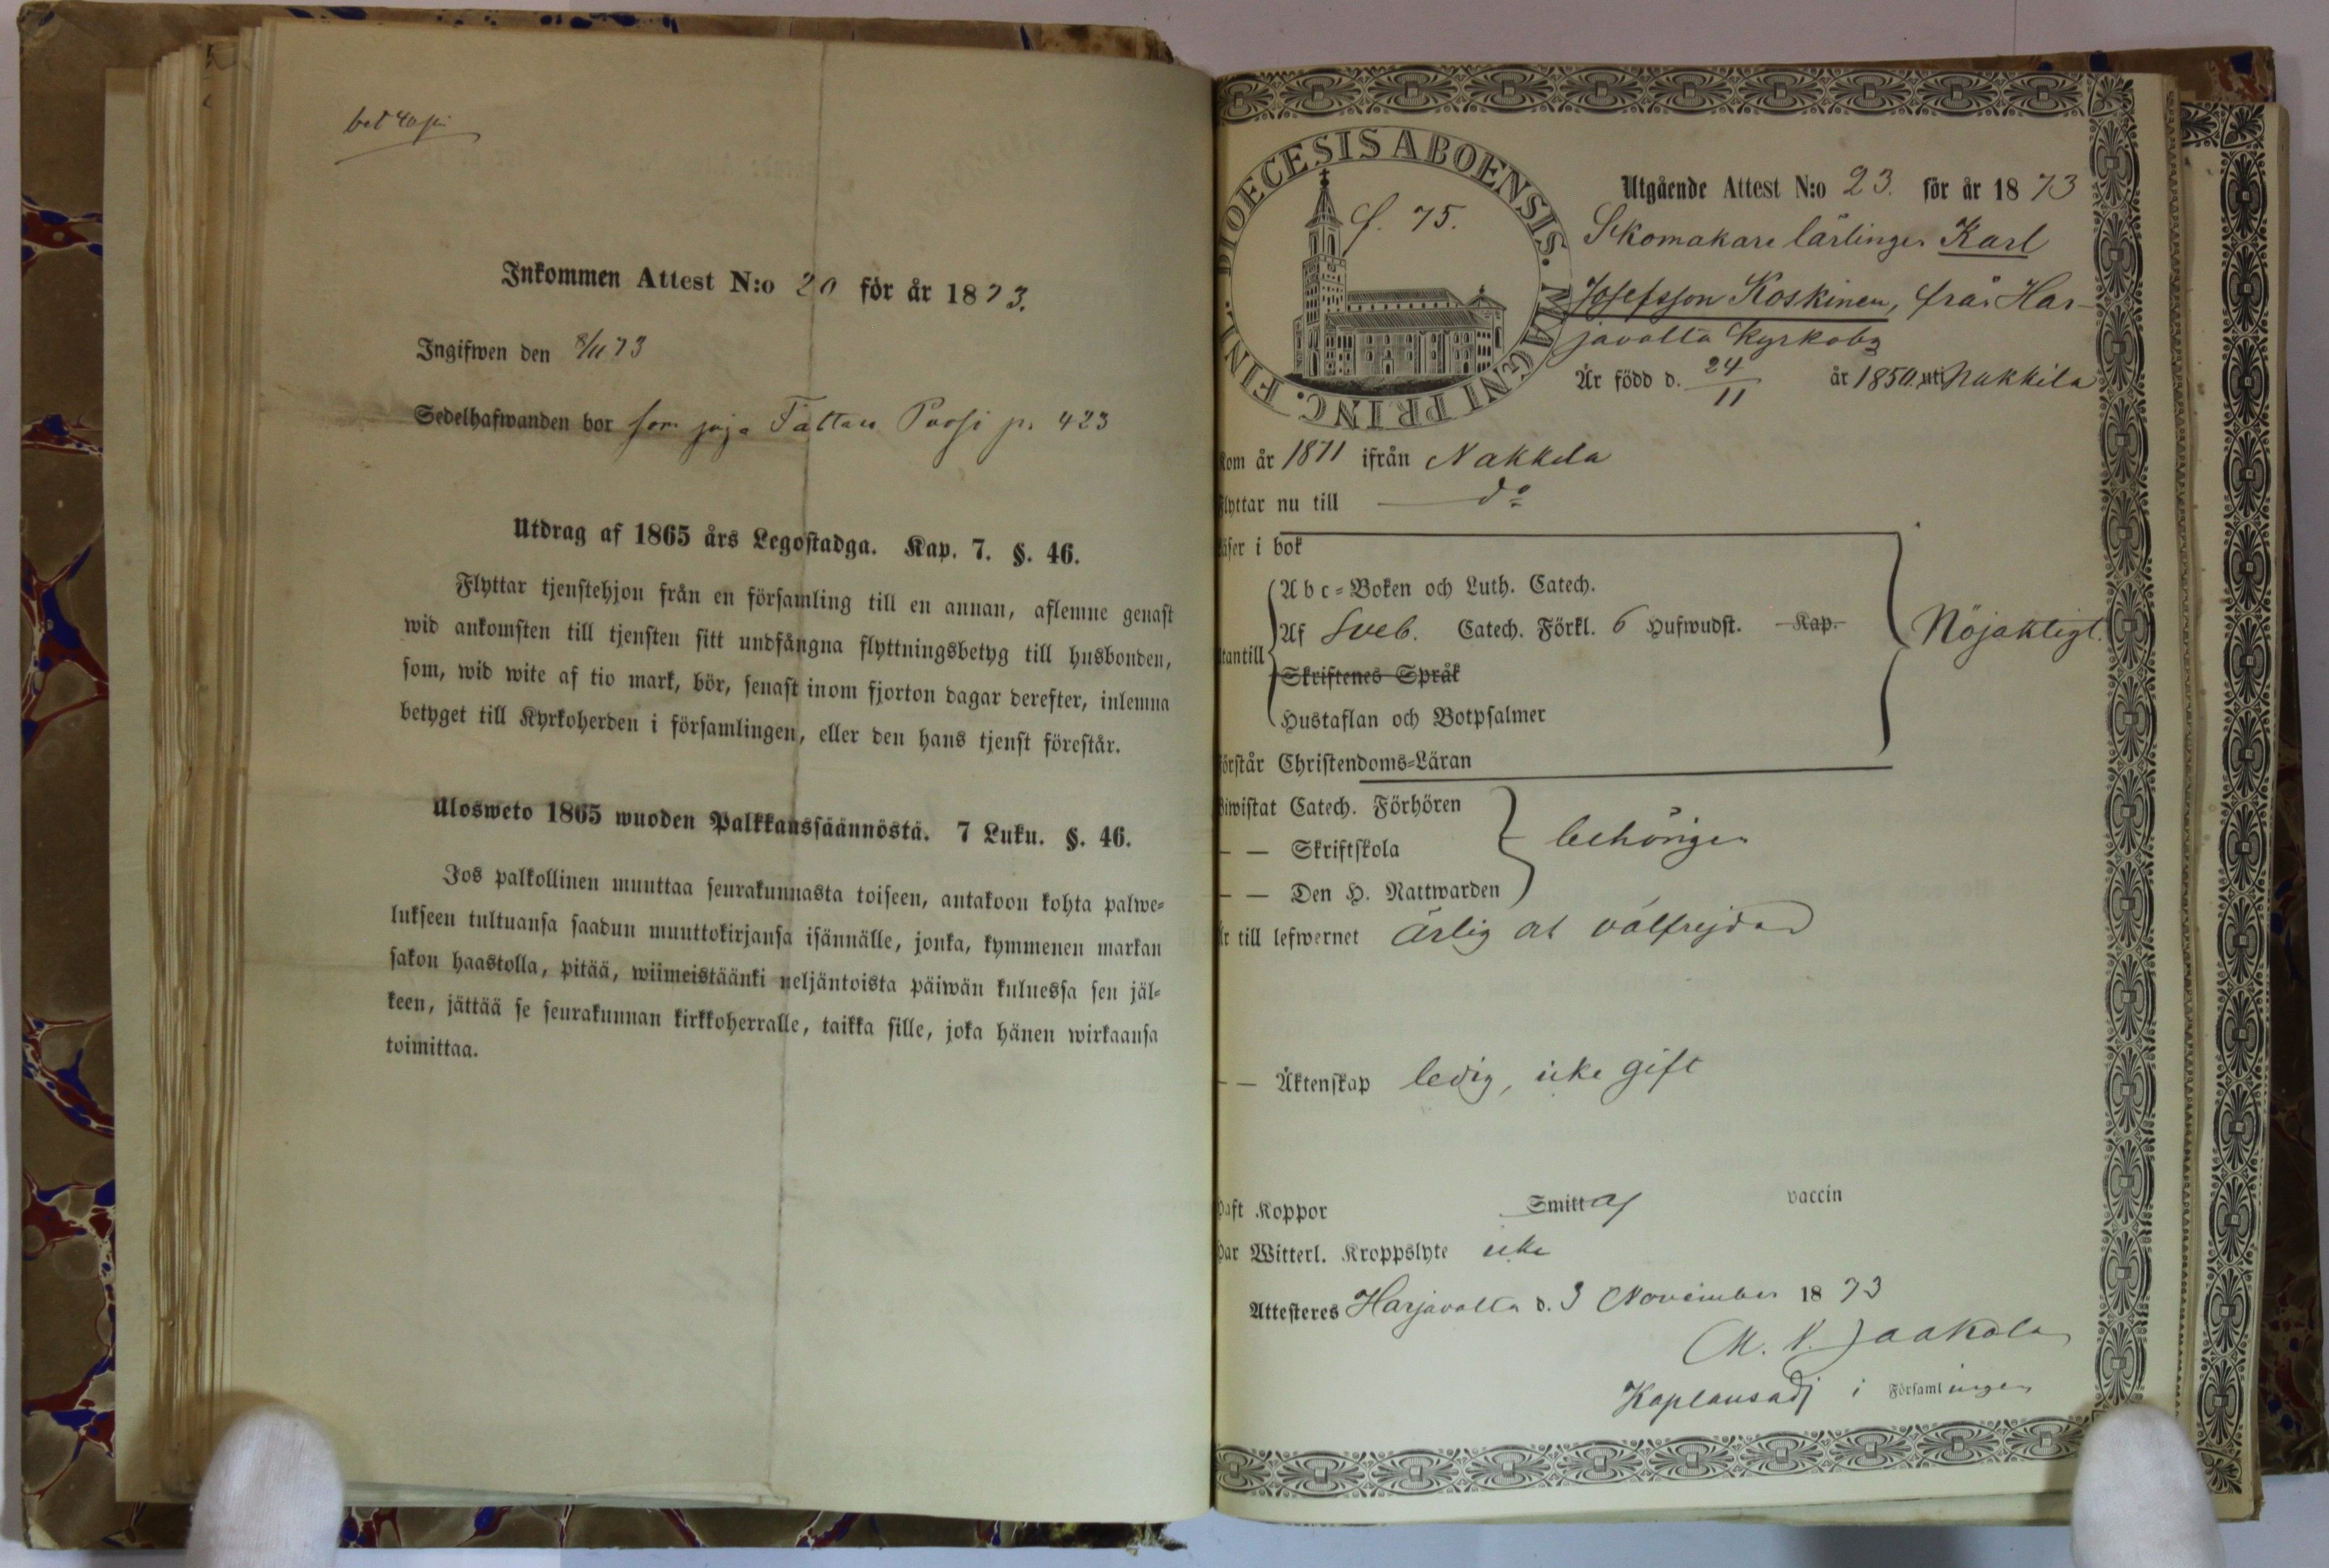 bet 40 pi
Inkommen Attest N:o 20 för år 1873.
Ingifwen den 8/11 73
Sedelhafwanden bor som piga 423
Utdrag af 1865 års Legostadga. Kap. 7. §. 46.
Flyttar tjenstehjon från en församling till en annan, aflemne genast
wid ankomsten till tjensten sitt undfångna flyttningsbetyg till husbonden,
som, wid wite af tio mark, bör, senast inom fjorton dagar derefter, inlemna
betyget till Kyrkoherden i församlingen, eller den hans tjenst förestår.
Ulosweto 1865 wuoden Palkkaussäännöstä. 7 Luku. §. 46.
Jos palkollinen muuttaa seurakunnasta toiseen, antakoon kohta palwe=
lukseen tultuansa saadun muuttokirjansa isännälle, jonka, kymmenen markan
sakon haastolla, pitää, wiimeistäänki neljäntoista päiwän kuluessa sen jäl=
keen, jättää se seurakunnan kirkkoherralle, taikka sille, joka hänen wirkaansa
toimittaa.
FINL. DIOECESIS ABOENSIS. MAGNI PRINC.
f. 75.
Utgående Attest N:o 23. för år 1873
Skomakare lärlingen Karl
Josefsson Koskinen, från Har-
javalta Kyrkoby
Är född d. 24/11 år 1850 uti Nakkila
kom år 1871 ifrån Nakkila
flyttar nu till do
läser i bok
Abc=Boken och Luth. Catech.
utantill Af Sveb. Catech. Förkl. 6 Hufwudst. Kap. Nöjaktigt.
Skriftenes Språk
Hustaflan och Botpsalmer
förstår Christendoms=Läran
Biwistat Catech. Förhören
— — Skriftskola behörigen
— — Den H. Nattwarden
Är till lefwernet ärlig och välfrejdad
— — Äktenskap ledig, icke gift
Haft Koppor Smitt vaccin
Har Witterl. Kroppslyte icke
Attesteres Harjavalta d. 3 November 1873
M. N. Jaakola
Kaplansadj i Församlingen